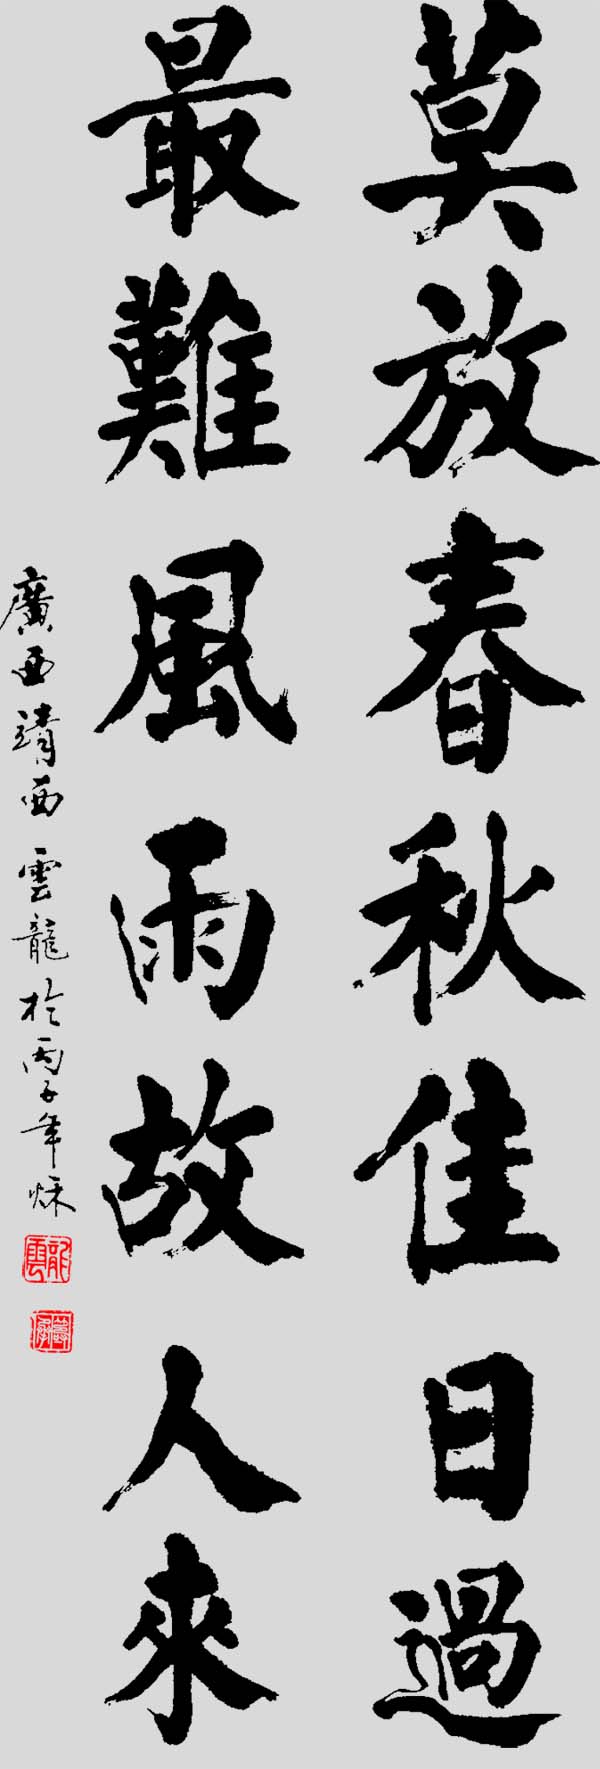 莫放春秋佳日過
最難風雨故人來
廣西靖西雲龍於丙子年秌
雲龍